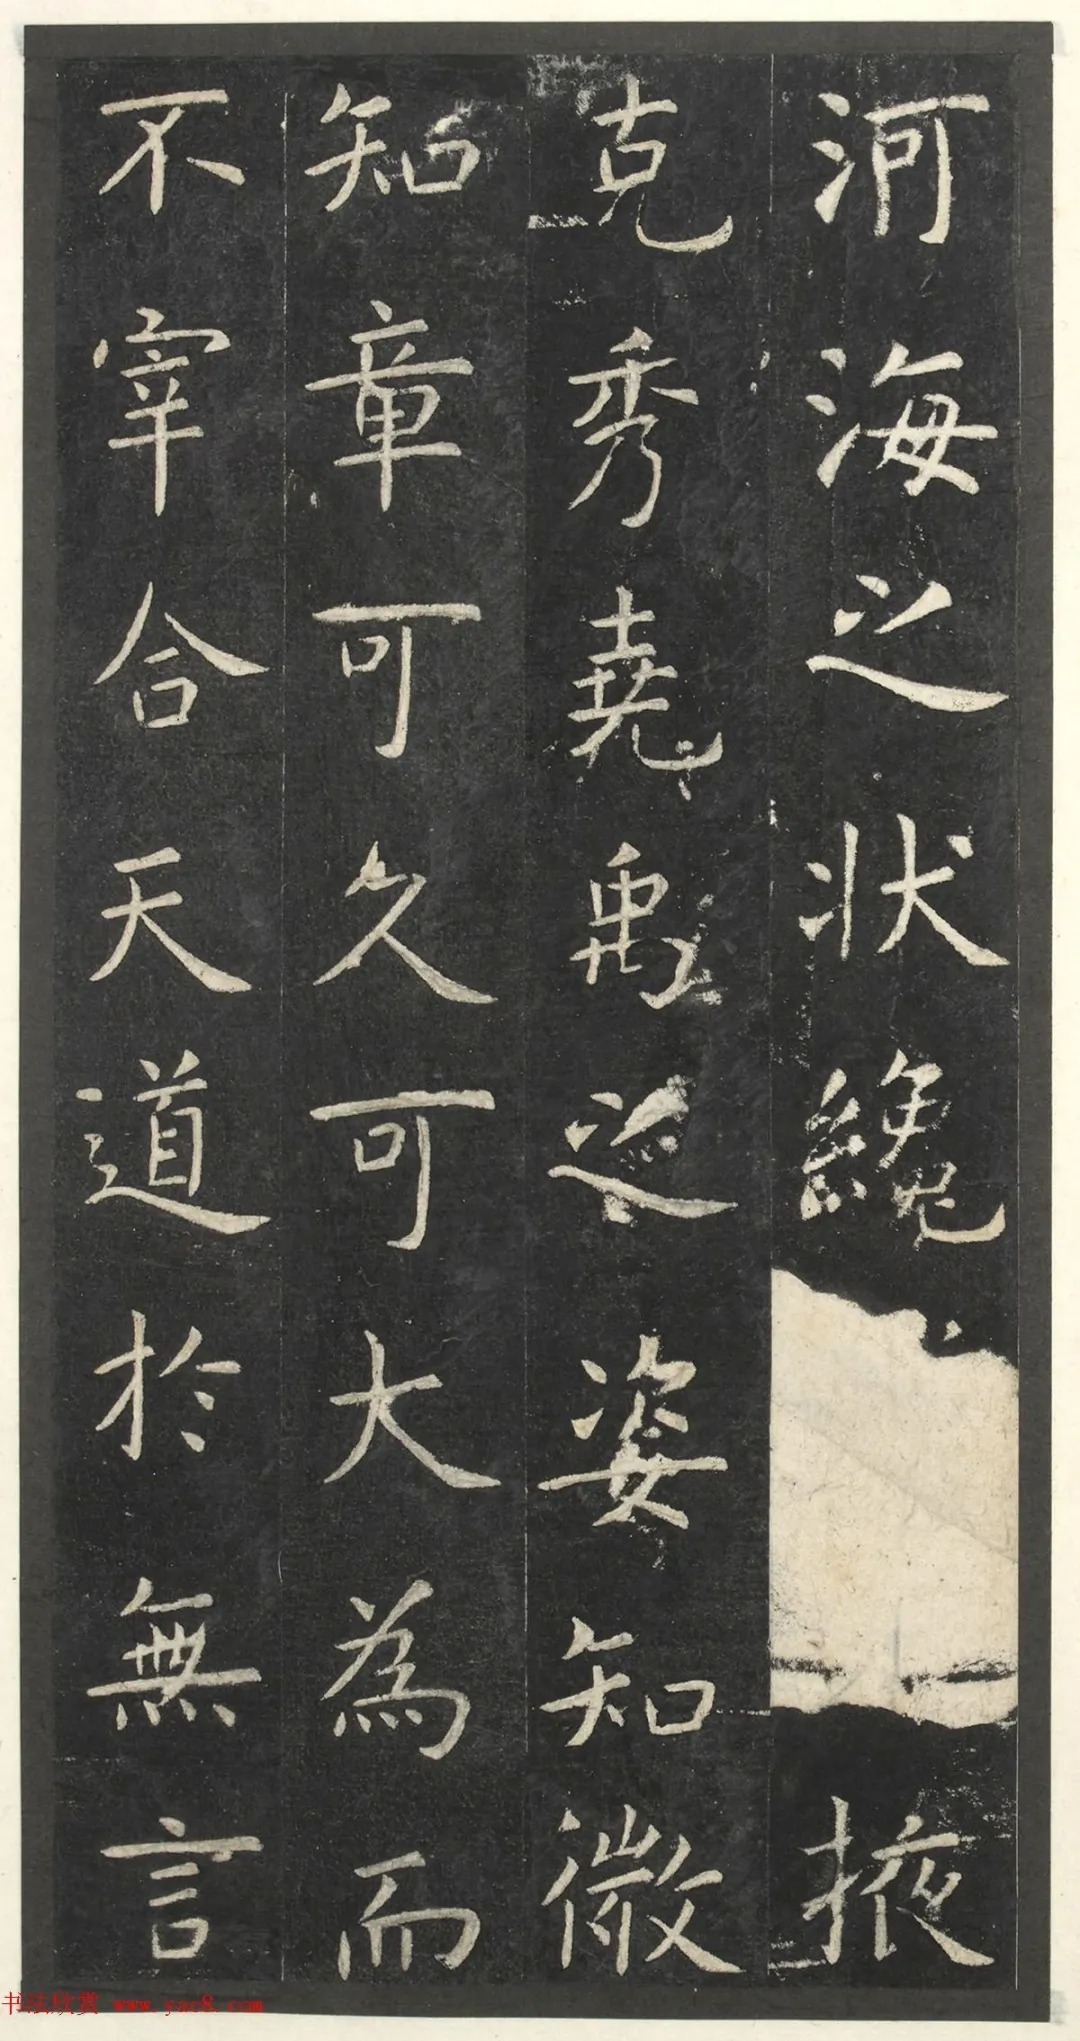 河海之状纔掖
克秀堯禹之姿知微
知章可久可大為而
不宰合天道於無言
书法欣赏 www.yac8.com